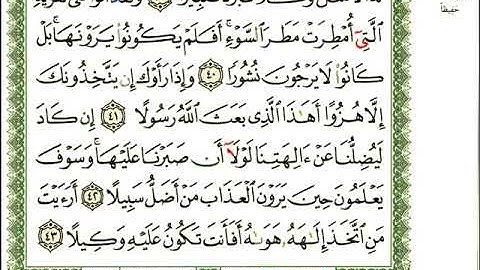 حفيظاً
ٱلَّتِىٓ أُمْطِرَتْ مَطَرَ ٱلسَّوْءِ ۚ أَفَلَمْ يَكُونُوا۟ يَرَوْنَهَا ۚ بَلْ
كَانُوا۟ لَا يَرْجُونَ نُشُورًا ٤٠ وَإِذَا رَأَوْكَ إِن يَتَّخِذُونَكَ
إِلَّا هُزُوًا أَهَٰذَا ٱلَّذِى بَعَثَ ٱللَّهُ رَسُولًا ٤١ إِن كَادَ
لَيُضِلُّنَا عَنْ ءَالِهَتِنَا لَوْلَآ أَن صَبَرْنَا عَلَيْهَا ۚ وَسَوْفَ
يَعْلَمُونَ حِينَ يَرَوْنَ ٱلْعَذَابَ مَنْ أَضَلُّ سَبِيلًا ٤٢ أَرَءَيْتَ
مَنِ ٱتَّخَذَ إِلَٰهَهُۥ هَوَىٰهُ أَفَأَنتَ تَكُونُ عَلَيْهِ وَكِيلًا ٤٣